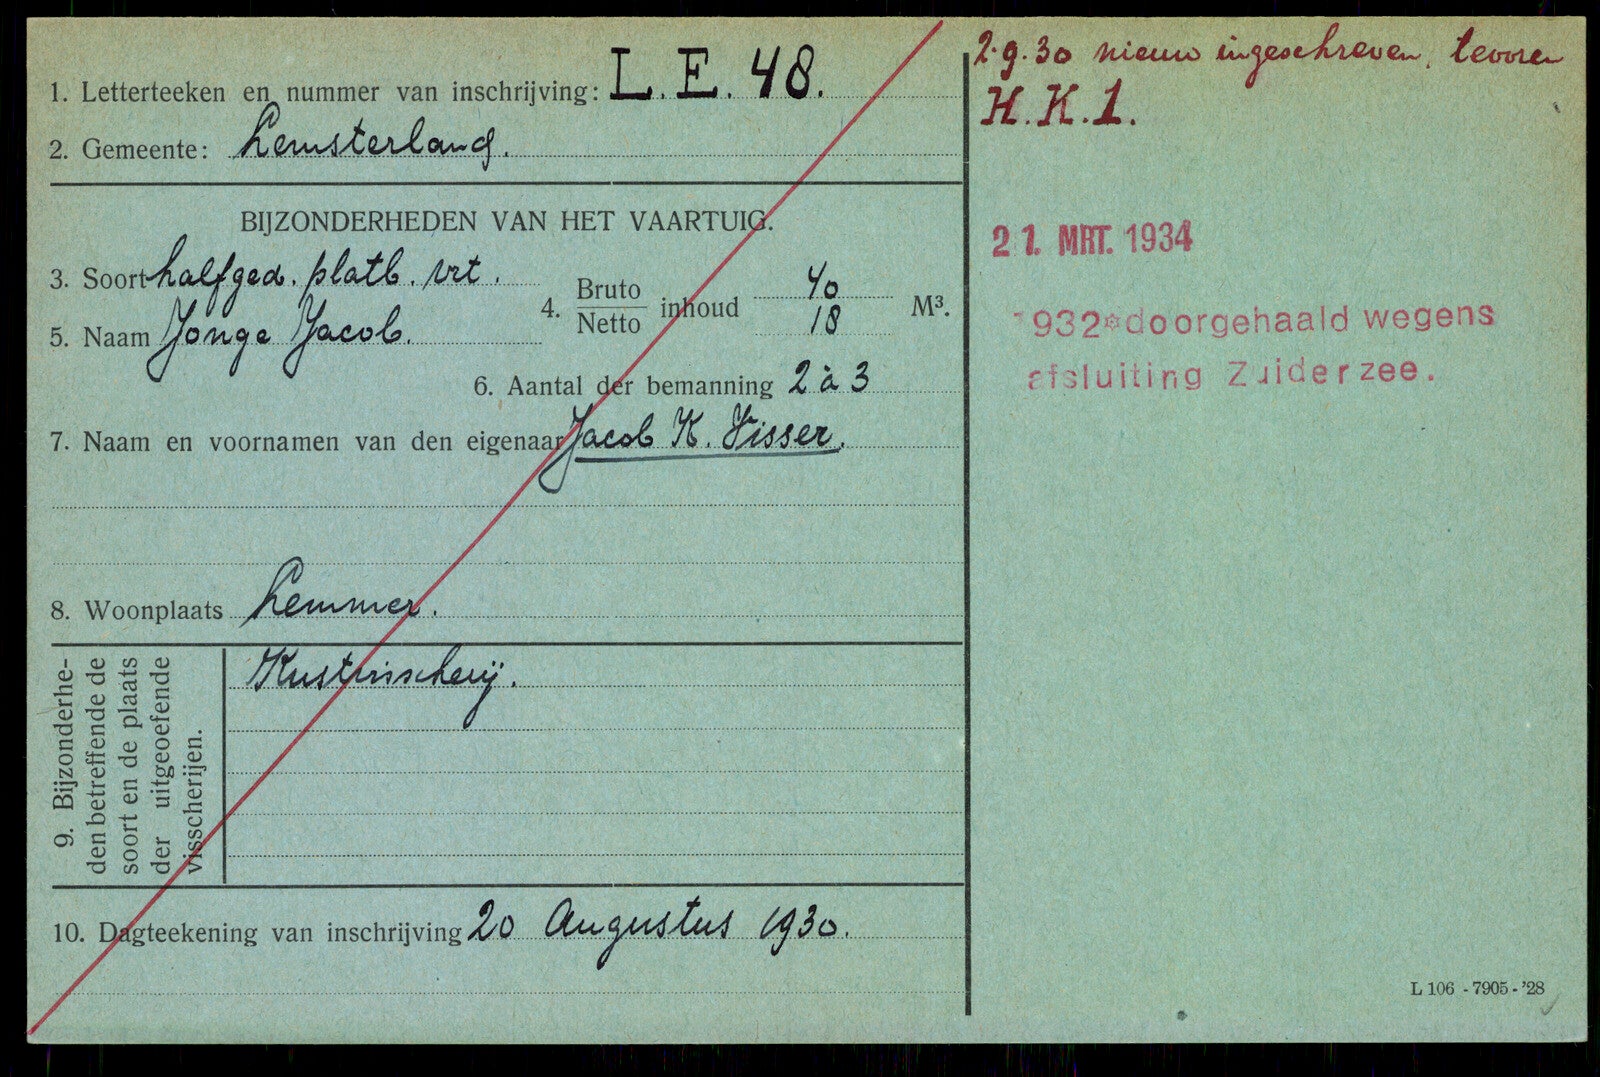 1. Letterteeken en nummer van inschrijving: L.E. 48.
2. Gemeente: Lemsterland.
BIJZONDERHEDEN VAN HET VAARTUIG.
3. Soort halfged. platb. vrt.
4. Bruto inhoud 40 M³.
Netto 18
5. Naam Jonge Jacob.
6. Aantal der bemanning 2 à 3
7. Naam en voornamen van den eigenaar Jacob K. Visser.
8. Woonplaats Lemmer.
9. Bijzonderhe-
den betreffende de
soort en de plaats
der uitgeoefende
visscherijen.
Kustvisscherij.
10. Dagteekening van inschrijving 20 Augustus 1930.
2.9.30 nieuw ingeschreven, tevoren
H.K.1.
21. MRT. 1934
1932 doorgehaald wegens
afsluiting Zuiderzee.
L 106 - 7905 - '28